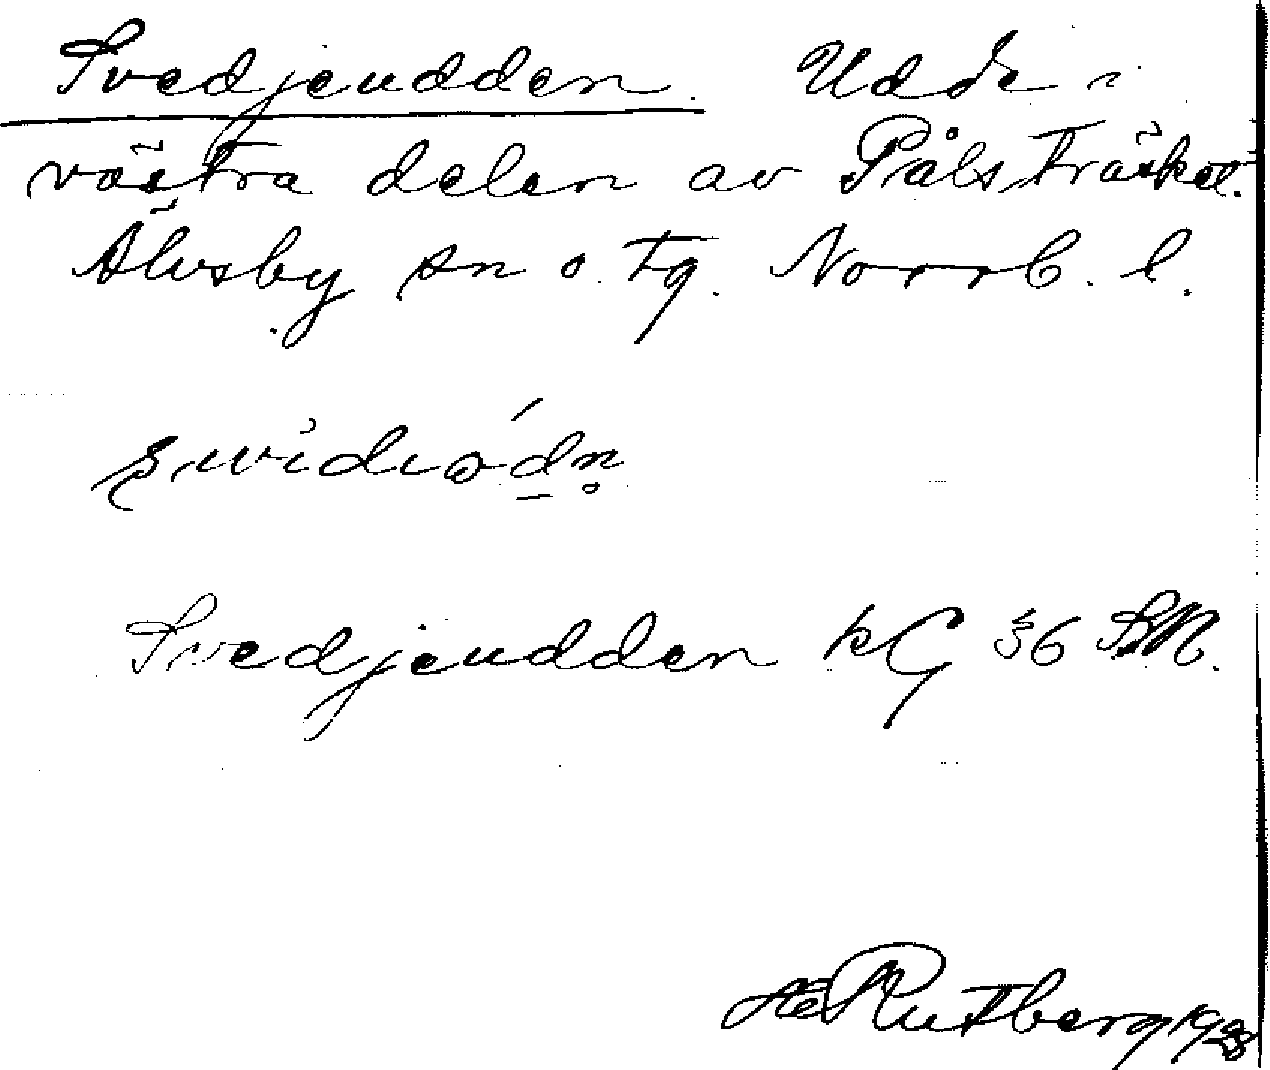 Svedjeudden. Udde i
västra delen av Pålsträsket.
Älvsby sn o. tg. Norrb. l.
Svedjeudden kG 36 SM.
Rutberg 1928